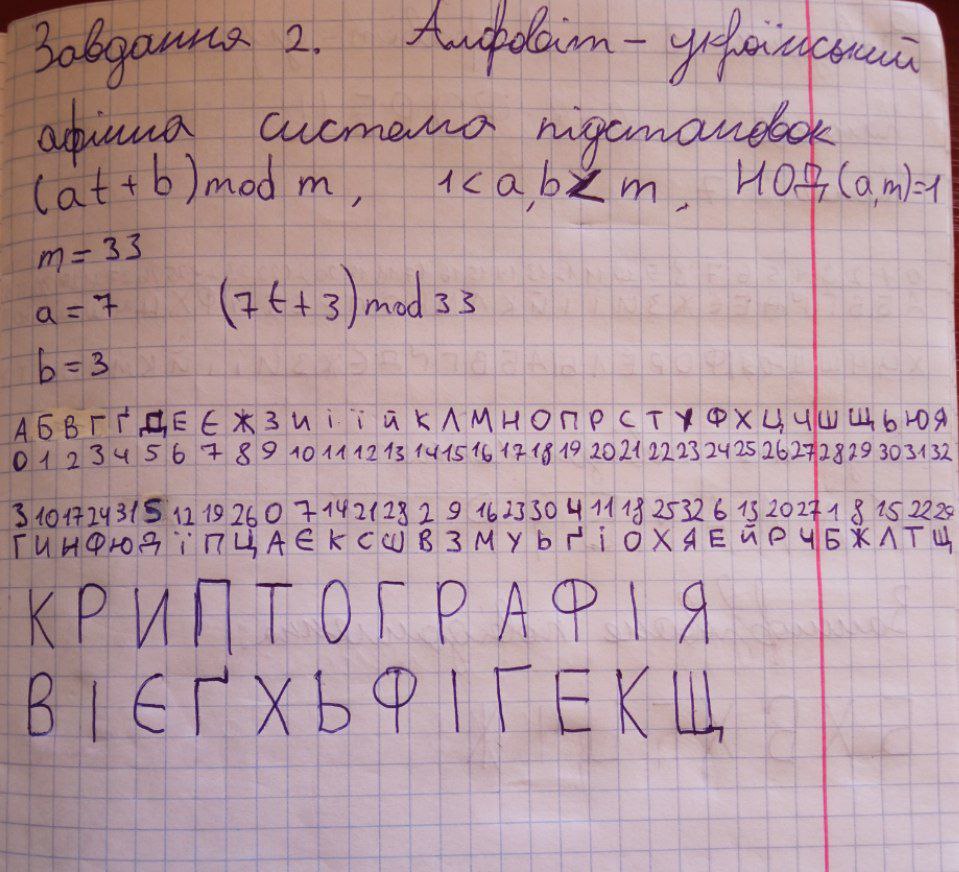 Завдання 2. Алфавіт - український
афінна система підстановок
(at + b) mod m, 1 < a, b < m, НОД (a, m) = 1
m = 33
a = 7 (7t + 3) mod 33
b = 3
А Б В Г Ґ Д Е Є Ж З И І Ї Й К Л М Н О П Р С Т У Ф Х Ц Ч Ш Щ Ь Ю Я
0 1 2 3 4 5 6 7 8 9 10 11 12 13 14 15 16 17 18 19 20 21 22 23 24 25 26 27 28 29 30 31 32
3 10 17 24 31 5 12 19 26 0 7 14 21 28 2 9 16 23 30 4 11 18 25 32 6 13 20 27 1 8 15 22 29
Г И Н Ф Ю Д Ї П Ц А Є К С Ш В З М У Ь Ґ І О Х Я Е Й Р Ч Б Ж Л Т Щ
К Р И П Т О Г Р А Ф І Я
В І Є Ґ Х Ь Ф І Г Е К Щ